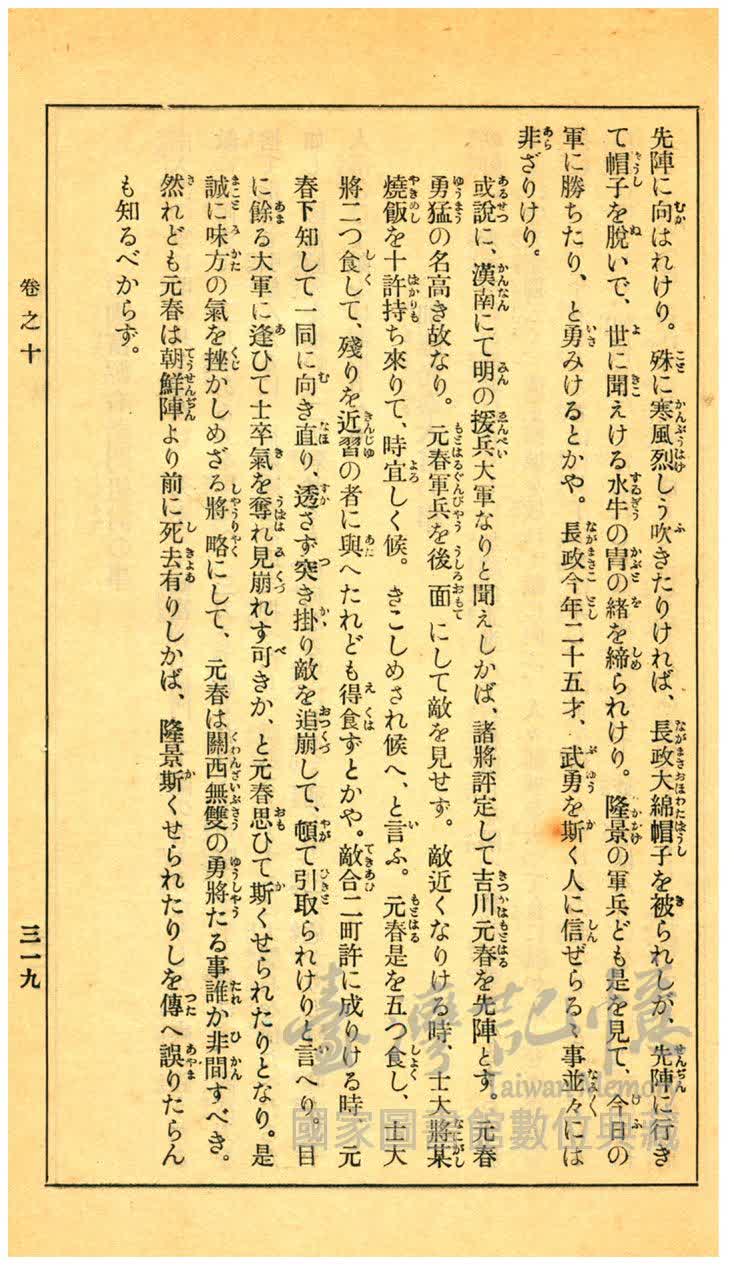 先陣に向はれけり。殊に寒風烈しう吹きたりければ、長政大綿帽子を被られしが、先陣に行き
て帽子を脱いで、世に聞えける水牛の冑の緒を締られけり。隆景の軍兵ども是を見て、今日の
軍に勝ちたり、と勇みけるとかや。長政今年二十五才、武勇を斯く人に信ぜらるゝ事並々には
非ざりけり。
或說に、漢南にて明の援兵大軍なりと聞えしかば、諸將評定して吉川元春を先陣とす。元春
勇猛の名高き故なり。元春軍兵を後面にして敵を見せず。敵近くなりける時、士大將某
燒飯を十許持ち來りて、時宜しく候。きこしめされ候へ、と言ふ。元春是を五つ食し、士大
將二つ食して、殘りを近習の者に與へたれども得食ずとかや。敵合二町許に成りける時、元
春下知して一同に向き直り、透さず突き掛り敵を追崩して、頓て引取られけりと言へり。目
に餘る大軍に逢ひて士卒氣を奪れ見崩れす可きか、と元春思ひて斯くせられたりとなり。是
誠に味方の氣を挫かしめざる將略にして、元春は關西無雙の勇將たる事誰か非間すべき。
然れども元春は朝鮮陣より前に死去有りしかば、隆景斯くせられたりしを傳へ誤りたらん
も知るべからず。
卷之十
三一九
臺灣記憶
Taiwan Memory
國家圖書館數位典藏